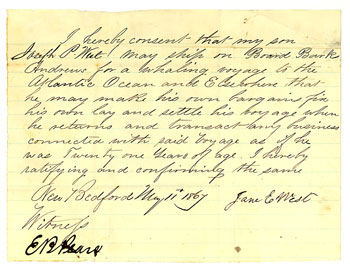 I hereby consent that my son
Joseph P West may ship on Board Bark
Andrews for a whaling voyage to the
Atlantic Ocean and Elsewhere that
he may make his own bargains fix
his own lay and settle his voyage when
he returns and transact any business
connected with said voyage as if he
was Twenty one Years of age. I hereby
ratifying and confirming the same
New Bedford May 1867 Jane E West
Witness
E B